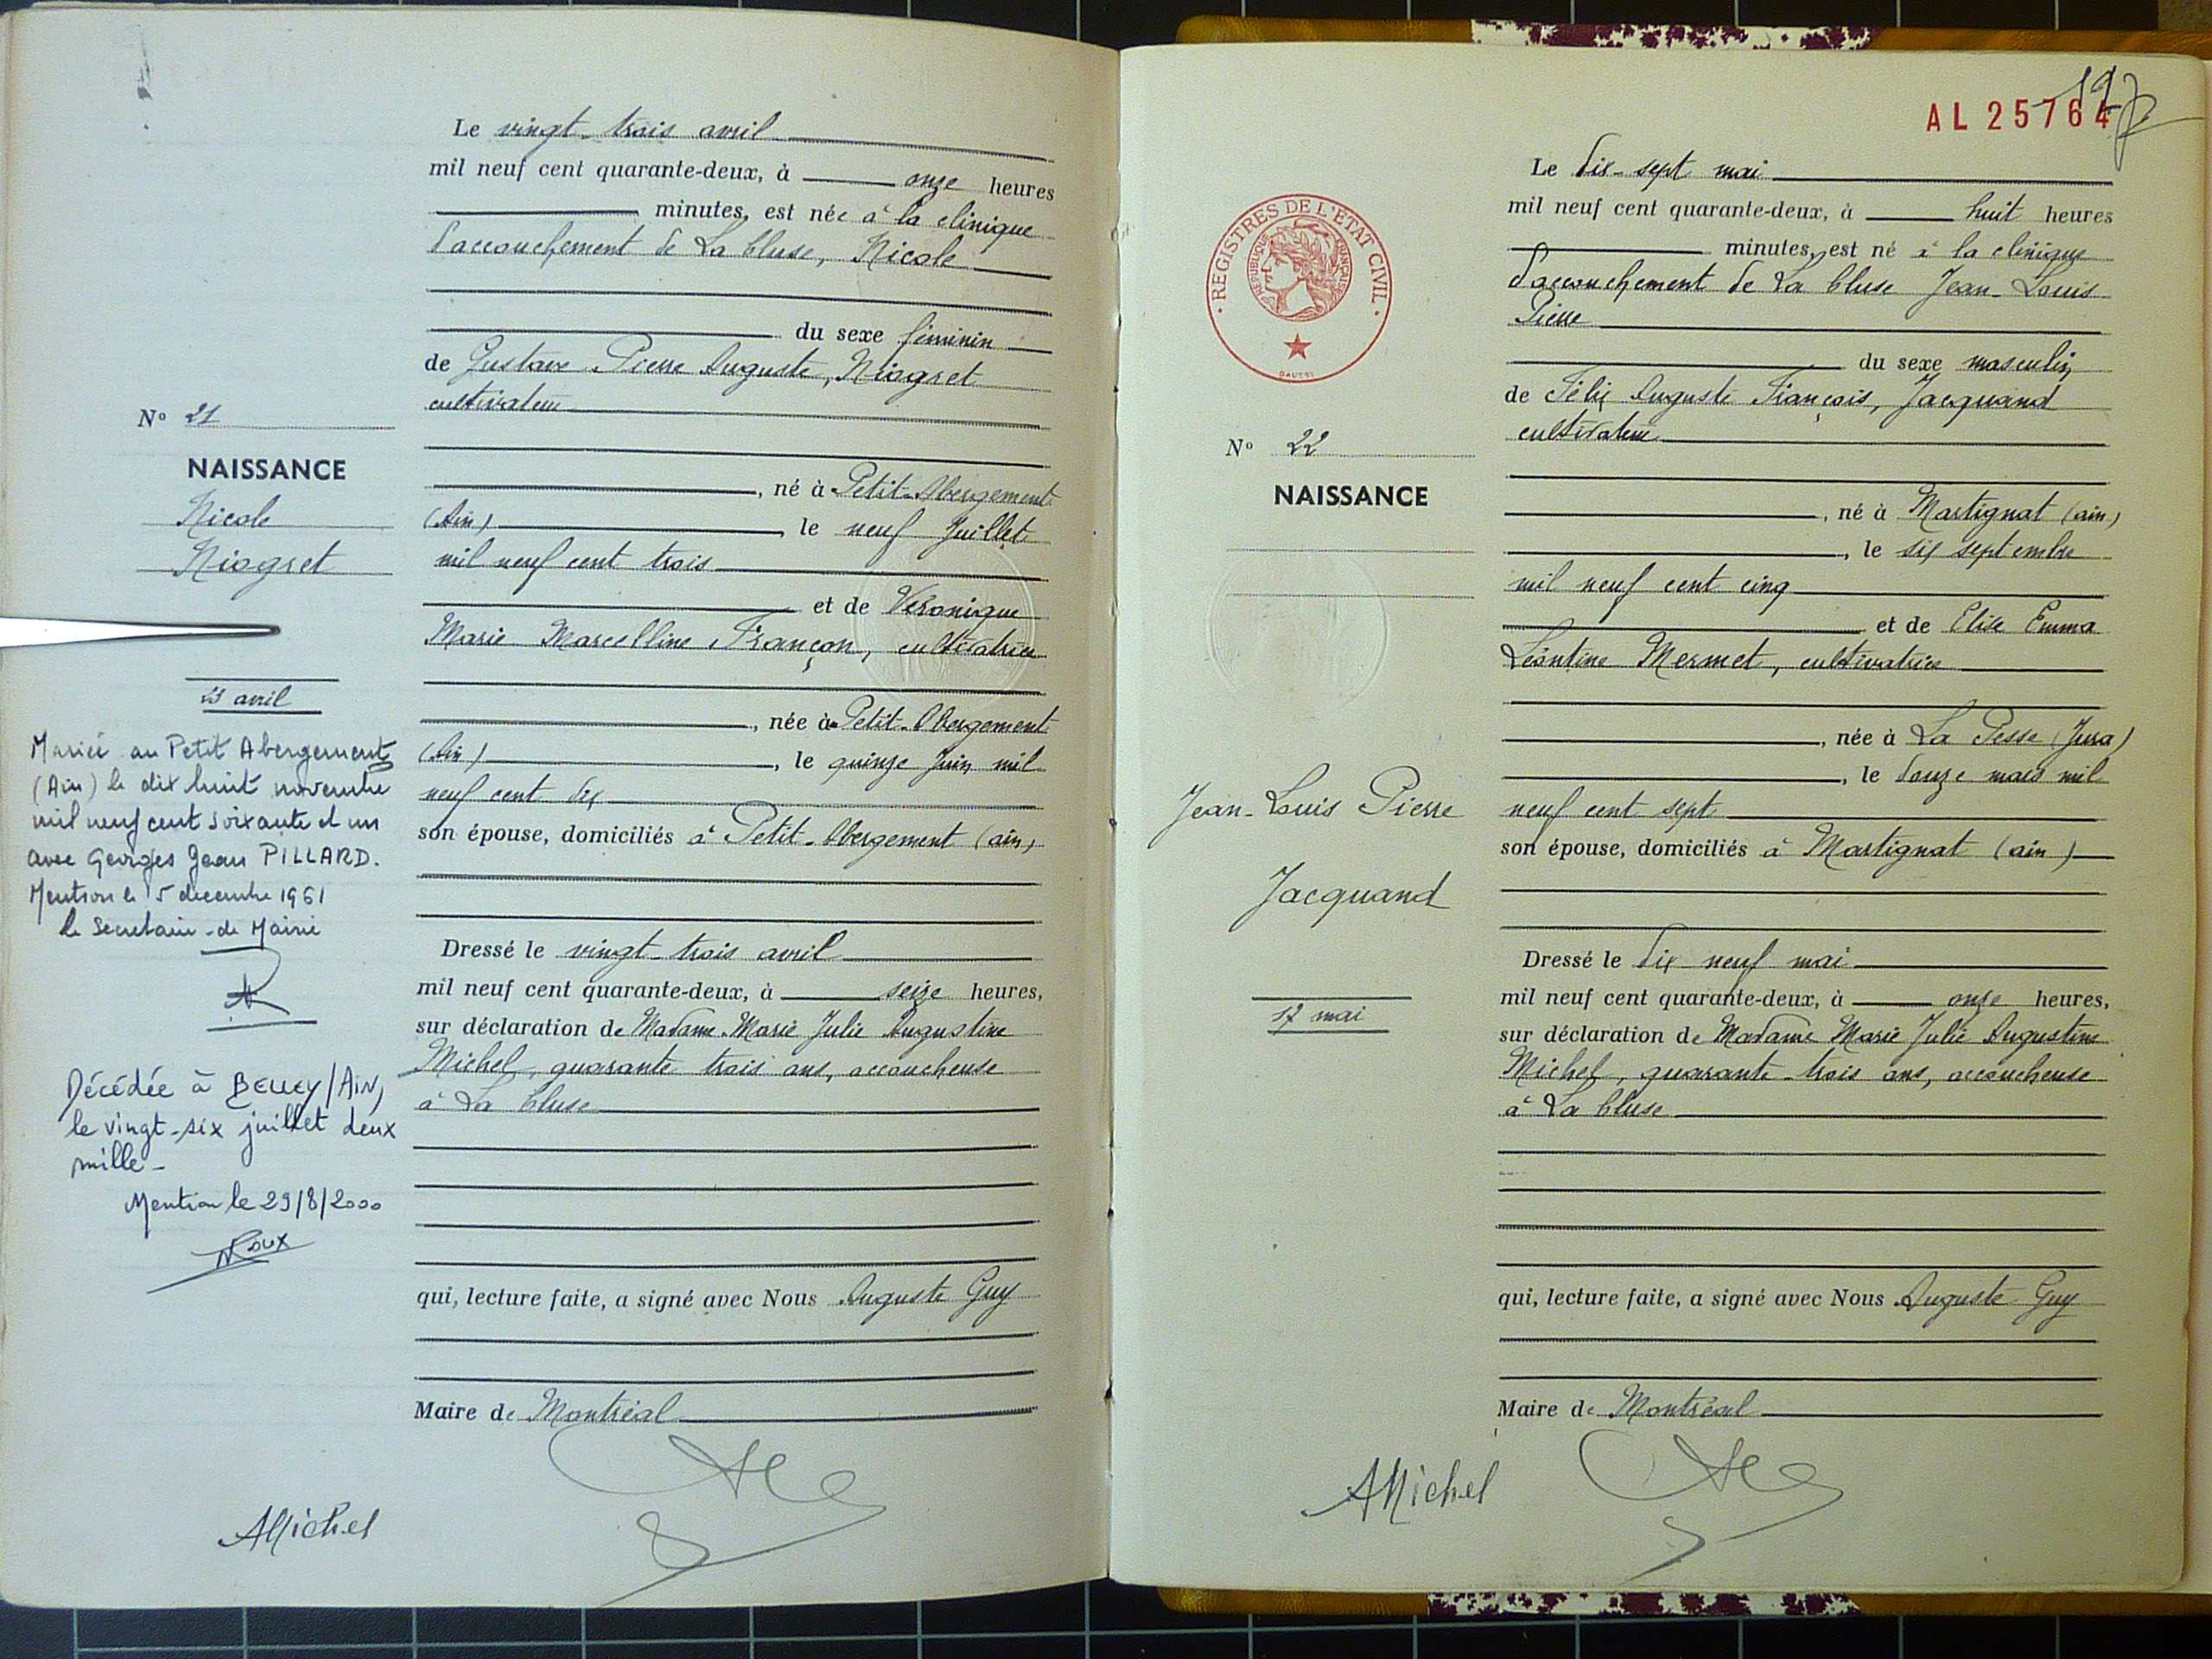 Le vingt-trois avril
mil neuf cent quarante-deux, à onze heures
minutes, est née à la clinique
d'accouchement de La Cluse, Nicole
du sexe féminin
de Gustave Pierre Auguste, Niogret
cultivateur
N° 21
NAISSANCE
Nicole
Niogret
, né à Petit-Abergement
(Ain) , le neuf Juillet
mil neuf cent trois
et de Véronique
Marie Marcelline Françon, cultivatrice
, née à Petit-Abergement
(Ain) , le quinze Juin mil
neuf cent dix
son épouse, domiciliés à Petit-Abergement (ain)
23 avril
Mariée au Petit Abergement
(Ain) le dix huit novembre
mil neuf cent soixante et un
avec Georges Jean PILLARD.
Mention le 5 décembre 1961
le Secrétaire de Mairie
Décédée à BELLEY/AIN,
le vingt-six juillet deux
mille -
Mention le 29/8/2000
Roux
Dressé le vingt-trois avril
mil neuf cent quarante-deux, à seize heures,
sur déclaration de Madame Marie Julie Augustine
Michel, quarante trois ans, accoucheuse
à La Cluse
qui, lecture faite, a signé avec Nous Auguste Guy
Maire de Montréal
AMichel
AL 25764
197
REGISTRES DE L'ÉTAT CIVIL
RÉPUBLIQUE FRANÇAISE
DAUSSI
Le dix-sept mai
mil neuf cent quarante-deux, à huit heures
minutes, est né à la clinique
d'accouchement de La Cluse Jean-Louis
Pierre
du sexe masculin
de Félix Auguste François, Jacquand
cultivateur
N° 22
NAISSANCE
, né à Martignat (ain)
, le six septembre
mil neuf cent cinq
et de Elise Emma
Léontine Mermet, cultivatrice
, née à La Pesse (Jura)
, le douze mars mil
neuf cent sept
son épouse, domiciliés à Martignat (ain)
Jean-Louis Pierre
Jacquand
17 mai
Dressé le dix neuf mai
mil neuf cent quarante-deux, à onze heures,
sur déclaration de Madame Marie Julie Augustine
Michel, quarante-trois ans, accoucheuse
à La Cluse
qui, lecture faite, a signé avec Nous Auguste Guy
Maire de Montréal
AMichel